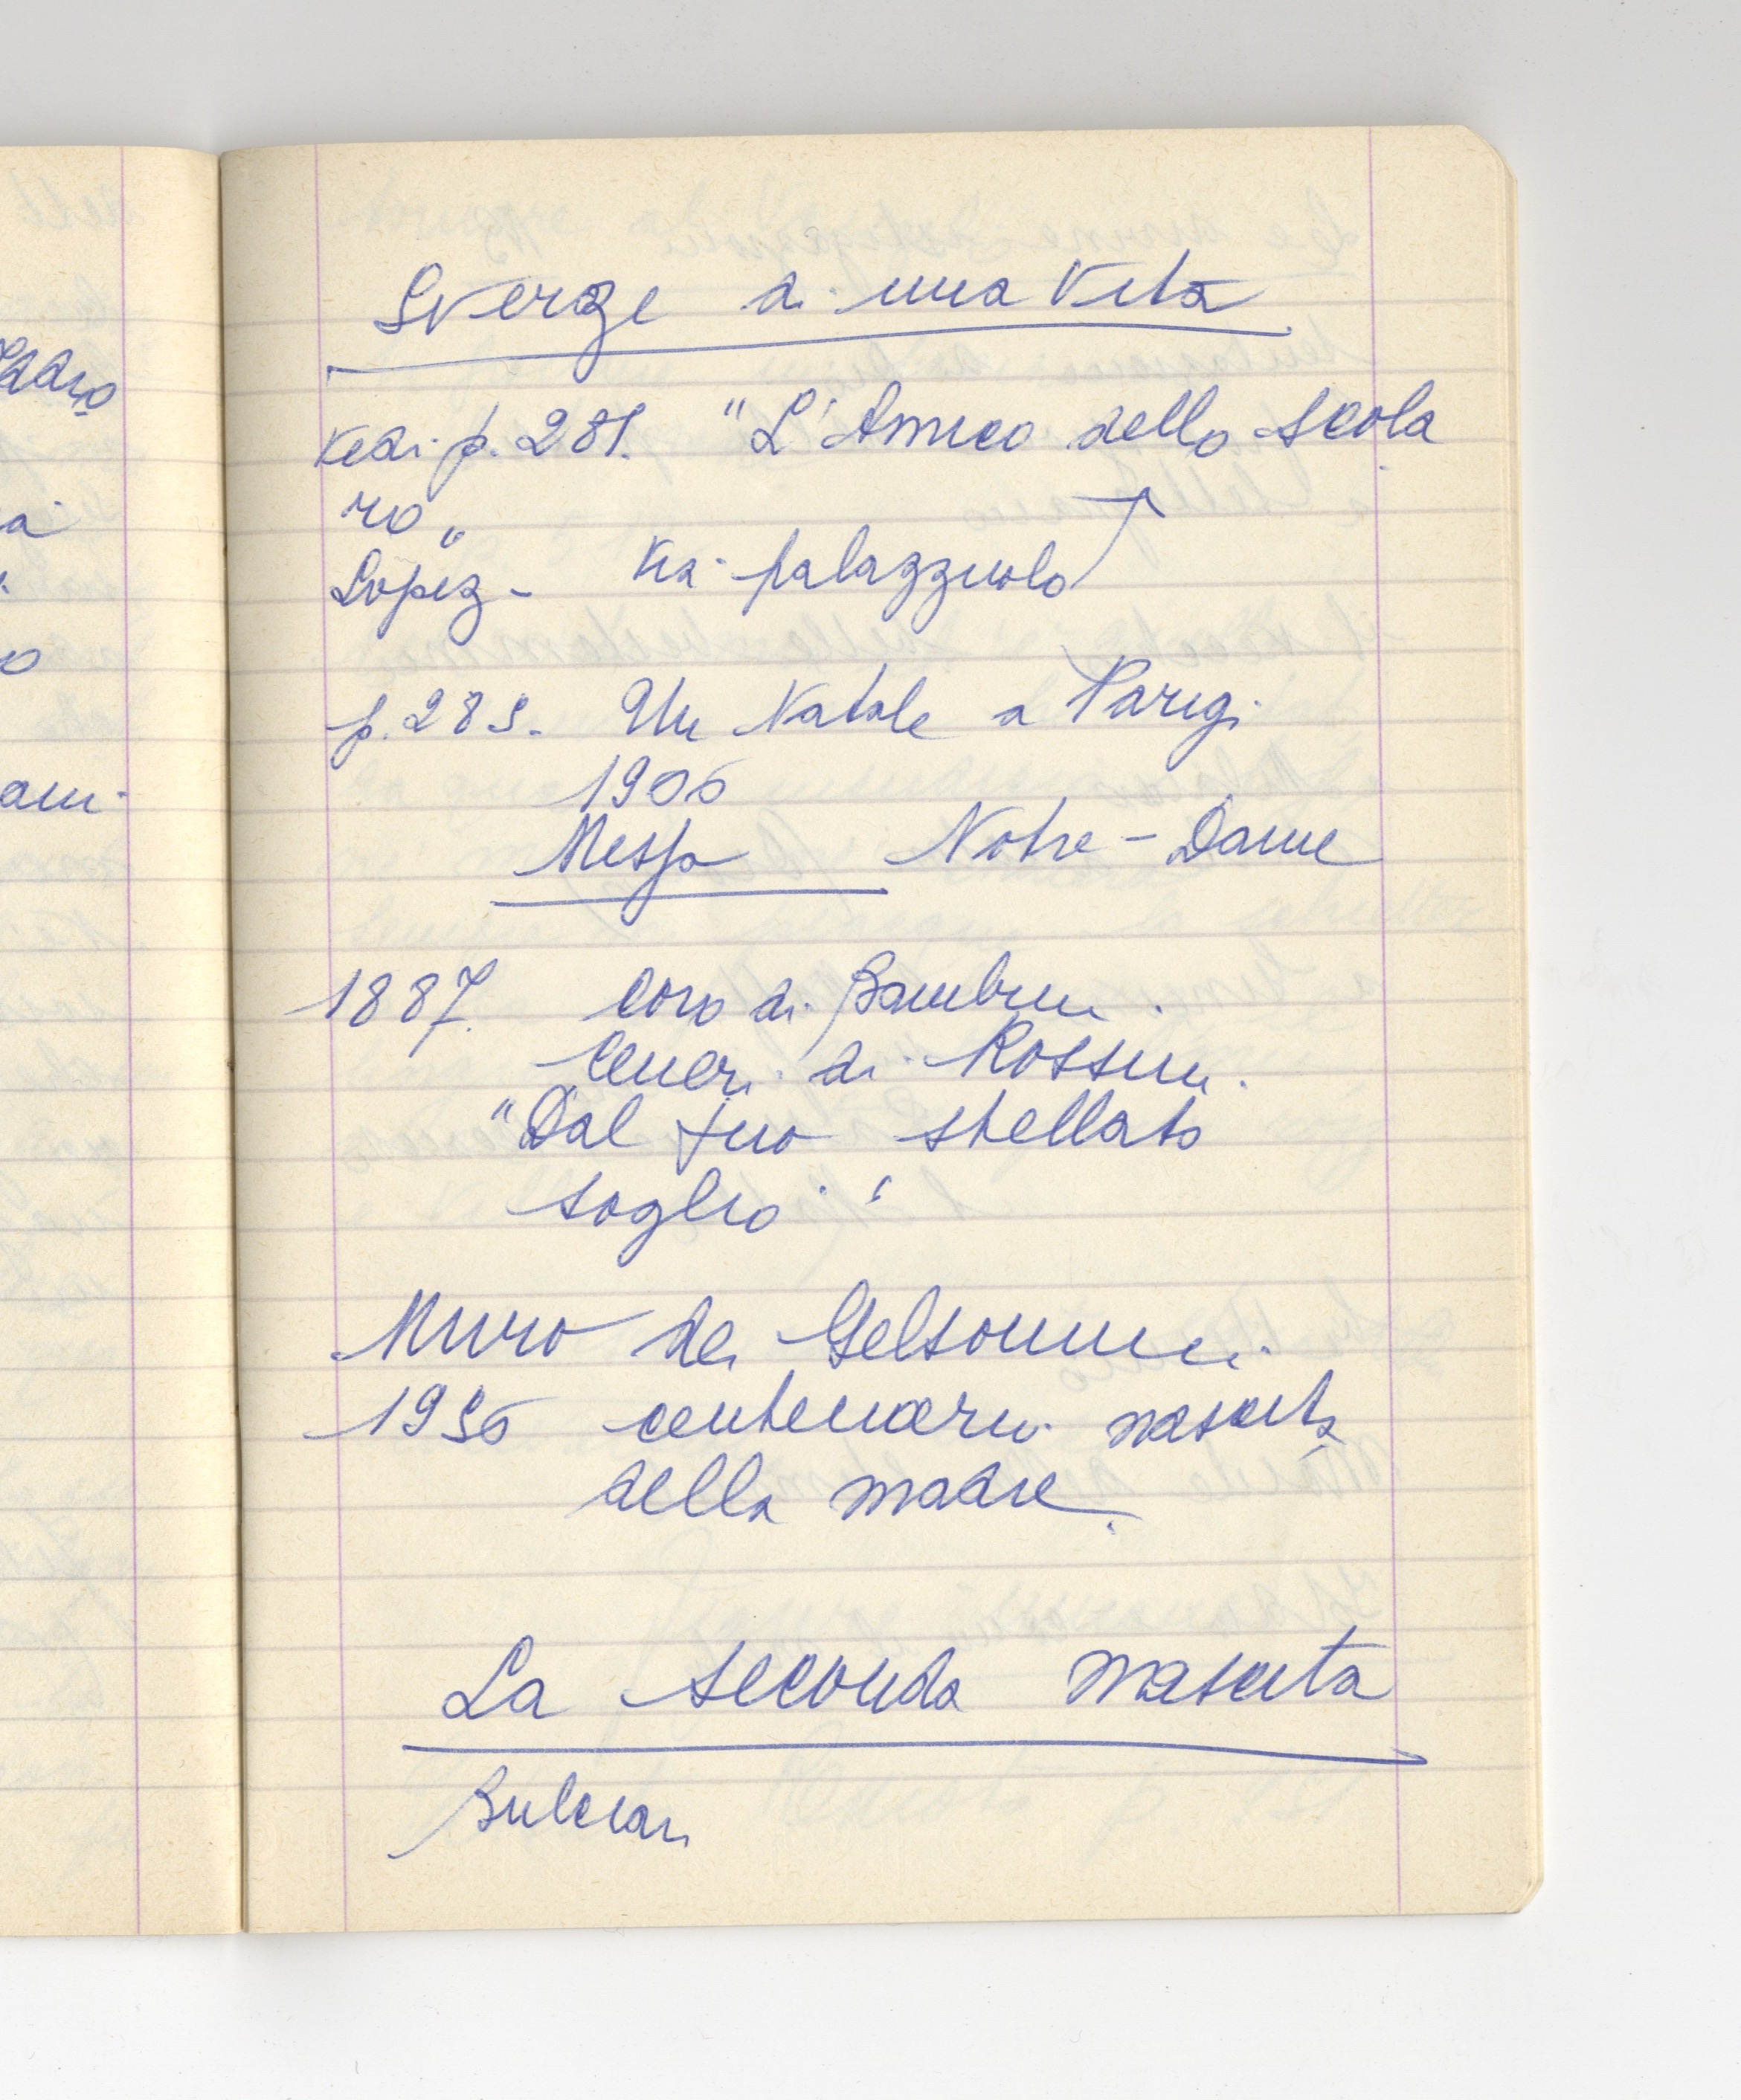 Sverze di una Vita
Vedi p. 281. "L'Amico dello scola
ro"
Lopez - Via palazzuolo
p. 289. Un Natale a Parigi
1906
Messa Notre-Dame
1887. Coro di Bambini.
Ceneri di Rossini.
"Dal tuo stellato
soglio"
Muro dei Gelsomini.
1956 centenario nascita
della madre.
La seconda nascita
Bulciani